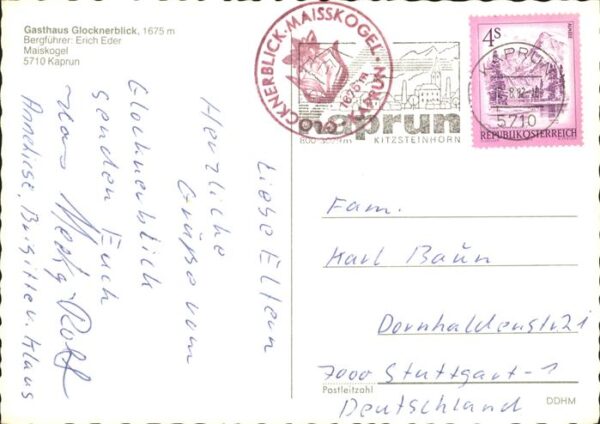 Gasthaus Glocknerblick, 1675 m
Bergführer: Erich Eder
Maiskogel
5710 Kaprun
GLOCKNERBLICK · MAISSKOGEL · KAPRUN
1675m
kaprun
KITZSTEINHORN
4S
REPUBLIK ÖSTERREICH
KAPRUN
5710
Liebe Eltern
Herzliche
Grüße vom
Glocknerblick
senden Euch
Anneliese, Brigitte u. Klaus
Fam.
Karl Baün
Dornhaldenstr 21
7000 Stuttgart-1
Postleitzahl
Deutschland
DDHM